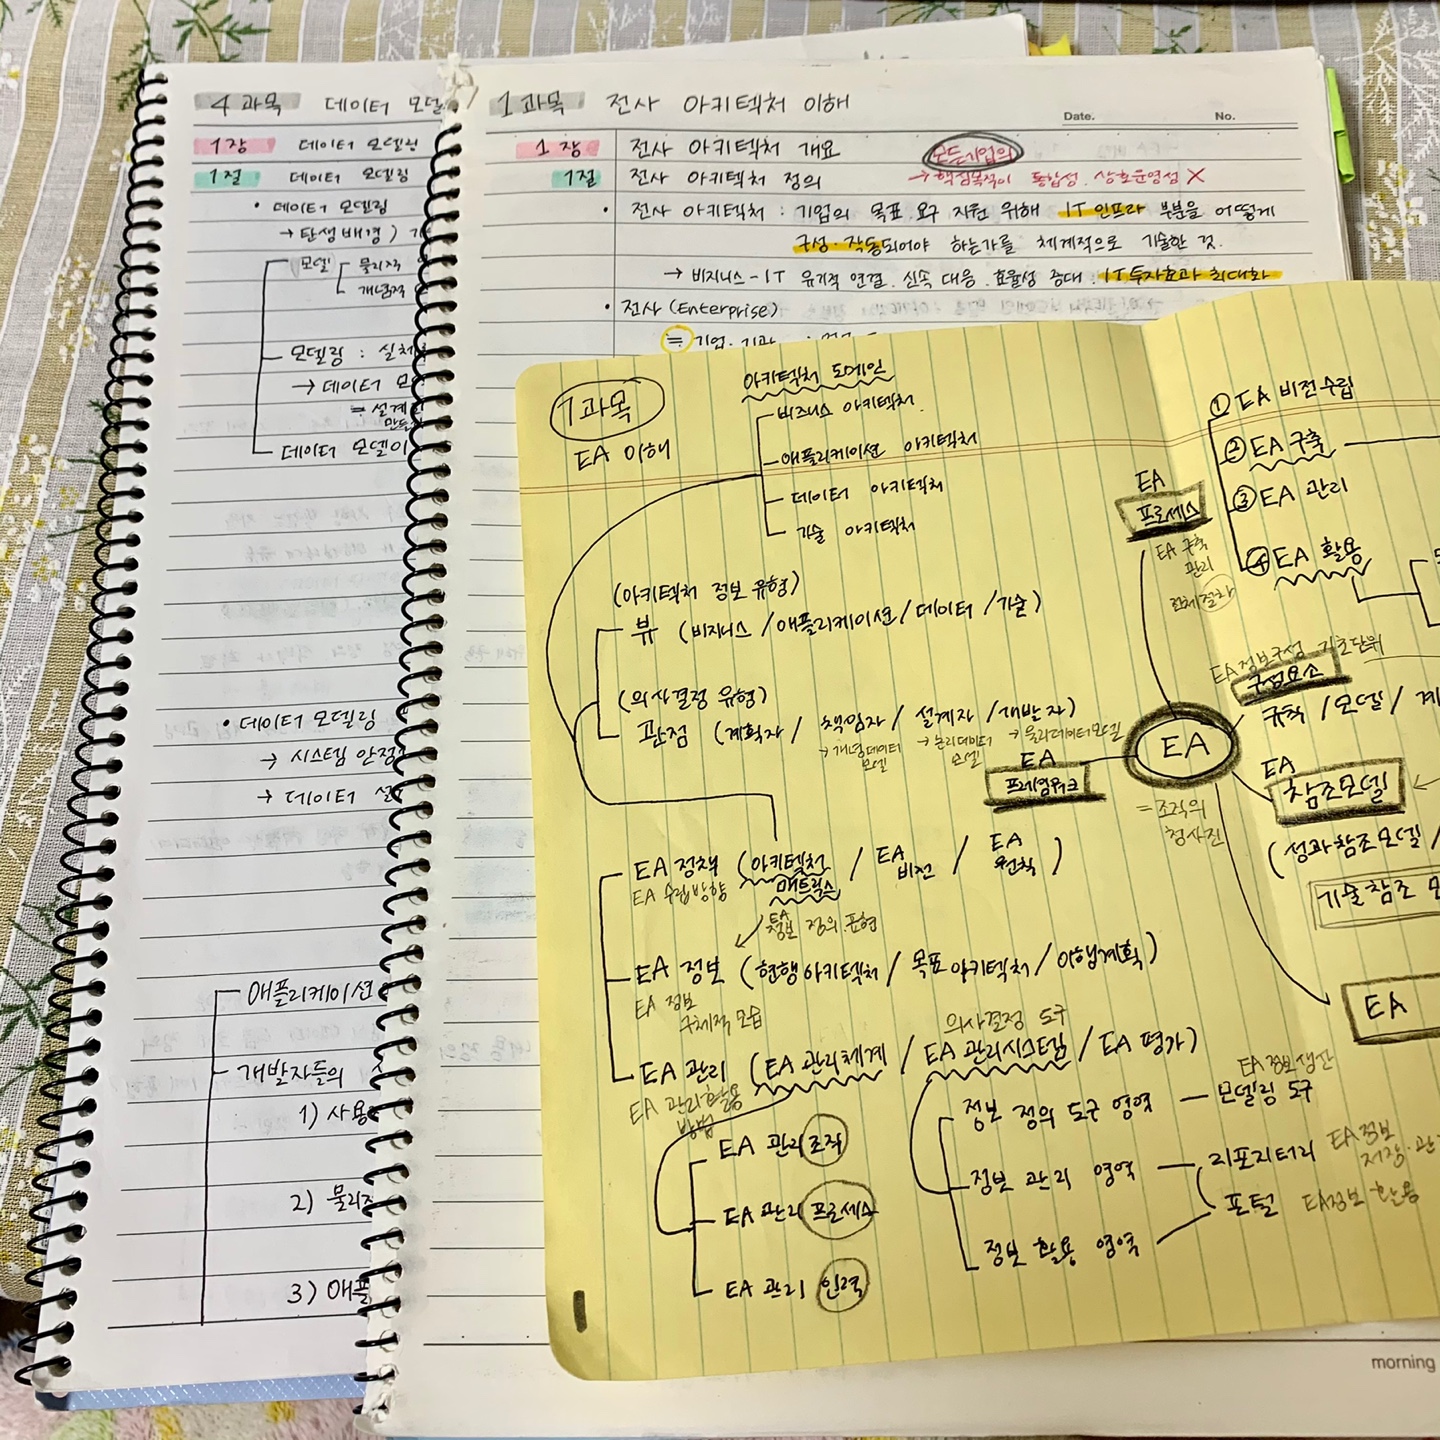 4과목 데이터 모델
1장 데이터 모델링
1절 데이터 모델링
• 데이터 모델링
→ 탄생배경)
모델
물리적
개념적
모델링 : 실체
→ 데이터 모
≒ 설계
만들
데이터 모델이
• 데이터 모델링
→ 시스템 안정
→ 데이터
애플리케이션
개발자들의
1) 사용
2) 물리
3) 애플
1과목 전사 아키텍처 이해
Date. No.
1장 전사 아키텍처 개요
모든기업의
1절 전사 아키텍처 정의
→ 핵심목적이 통합성. 상호운영성 X
• 전사 아키텍처 : 기업의 목표 요구 지원 위해 IT 인프라 부분을 어떻게
구성·작동되어야 하는가를 체계적으로 기술한 것.
→ 비지니스-IT 유기적 연결. 신속 대응. 효율성 증대. IT투자효과 최대화
• 전사 (Enterprise)
≒ 기업·기관
1과목
EA 이해
아키텍처 도메인
비즈니스 아키텍처
애플리케이션 아키텍처
데이터 아키텍처
기술 아키텍처
(아키텍처 정보 유형)
뷰 (비지니스 / 애플리케이션 / 데이터 / 기술)
(의사결정 유형)
관점 (계획자 / 책임자 / 설계자 / 개발자)
→ 개념데이터 모델
→ 논리데이터 모델
→ 물리데이터모델
EA 정책 (아키텍처 매트릭스 / EA 비전 / EA 원칙)
EA 수립방향
EA 정보 정의 표현
EA 정보 (현행아키텍처 / 목표아키텍처 / 이행계획)
EA 정보
구체적 모습
의사결정 도구
EA 관리 (EA 관리체계 / EA 관리시스템 / EA 평가)
EA 관리활용
방법
EA 관리 조직
EA 관리 프로세스
EA 관리 인력
정보 정의 도구 영역 — 모델링 도구
EA 정보생산
정보 관리 영역 — 리포지터리
EA 정보
저장·관
정보 활용 영역
포털 EA정보 활용
① EA 비전수립
② EA 구축
③ EA 관리
④ EA 활용
EA
프로세스
EA 구축
관리
전체절차
EA정보구성 기초단위
구성요소
규칙 / 모델 / 계
EA
= 조직의
청사진
EA
프레임워크
EA
참조모델
(성과참조모델 /
기술참조 모
EA
morning